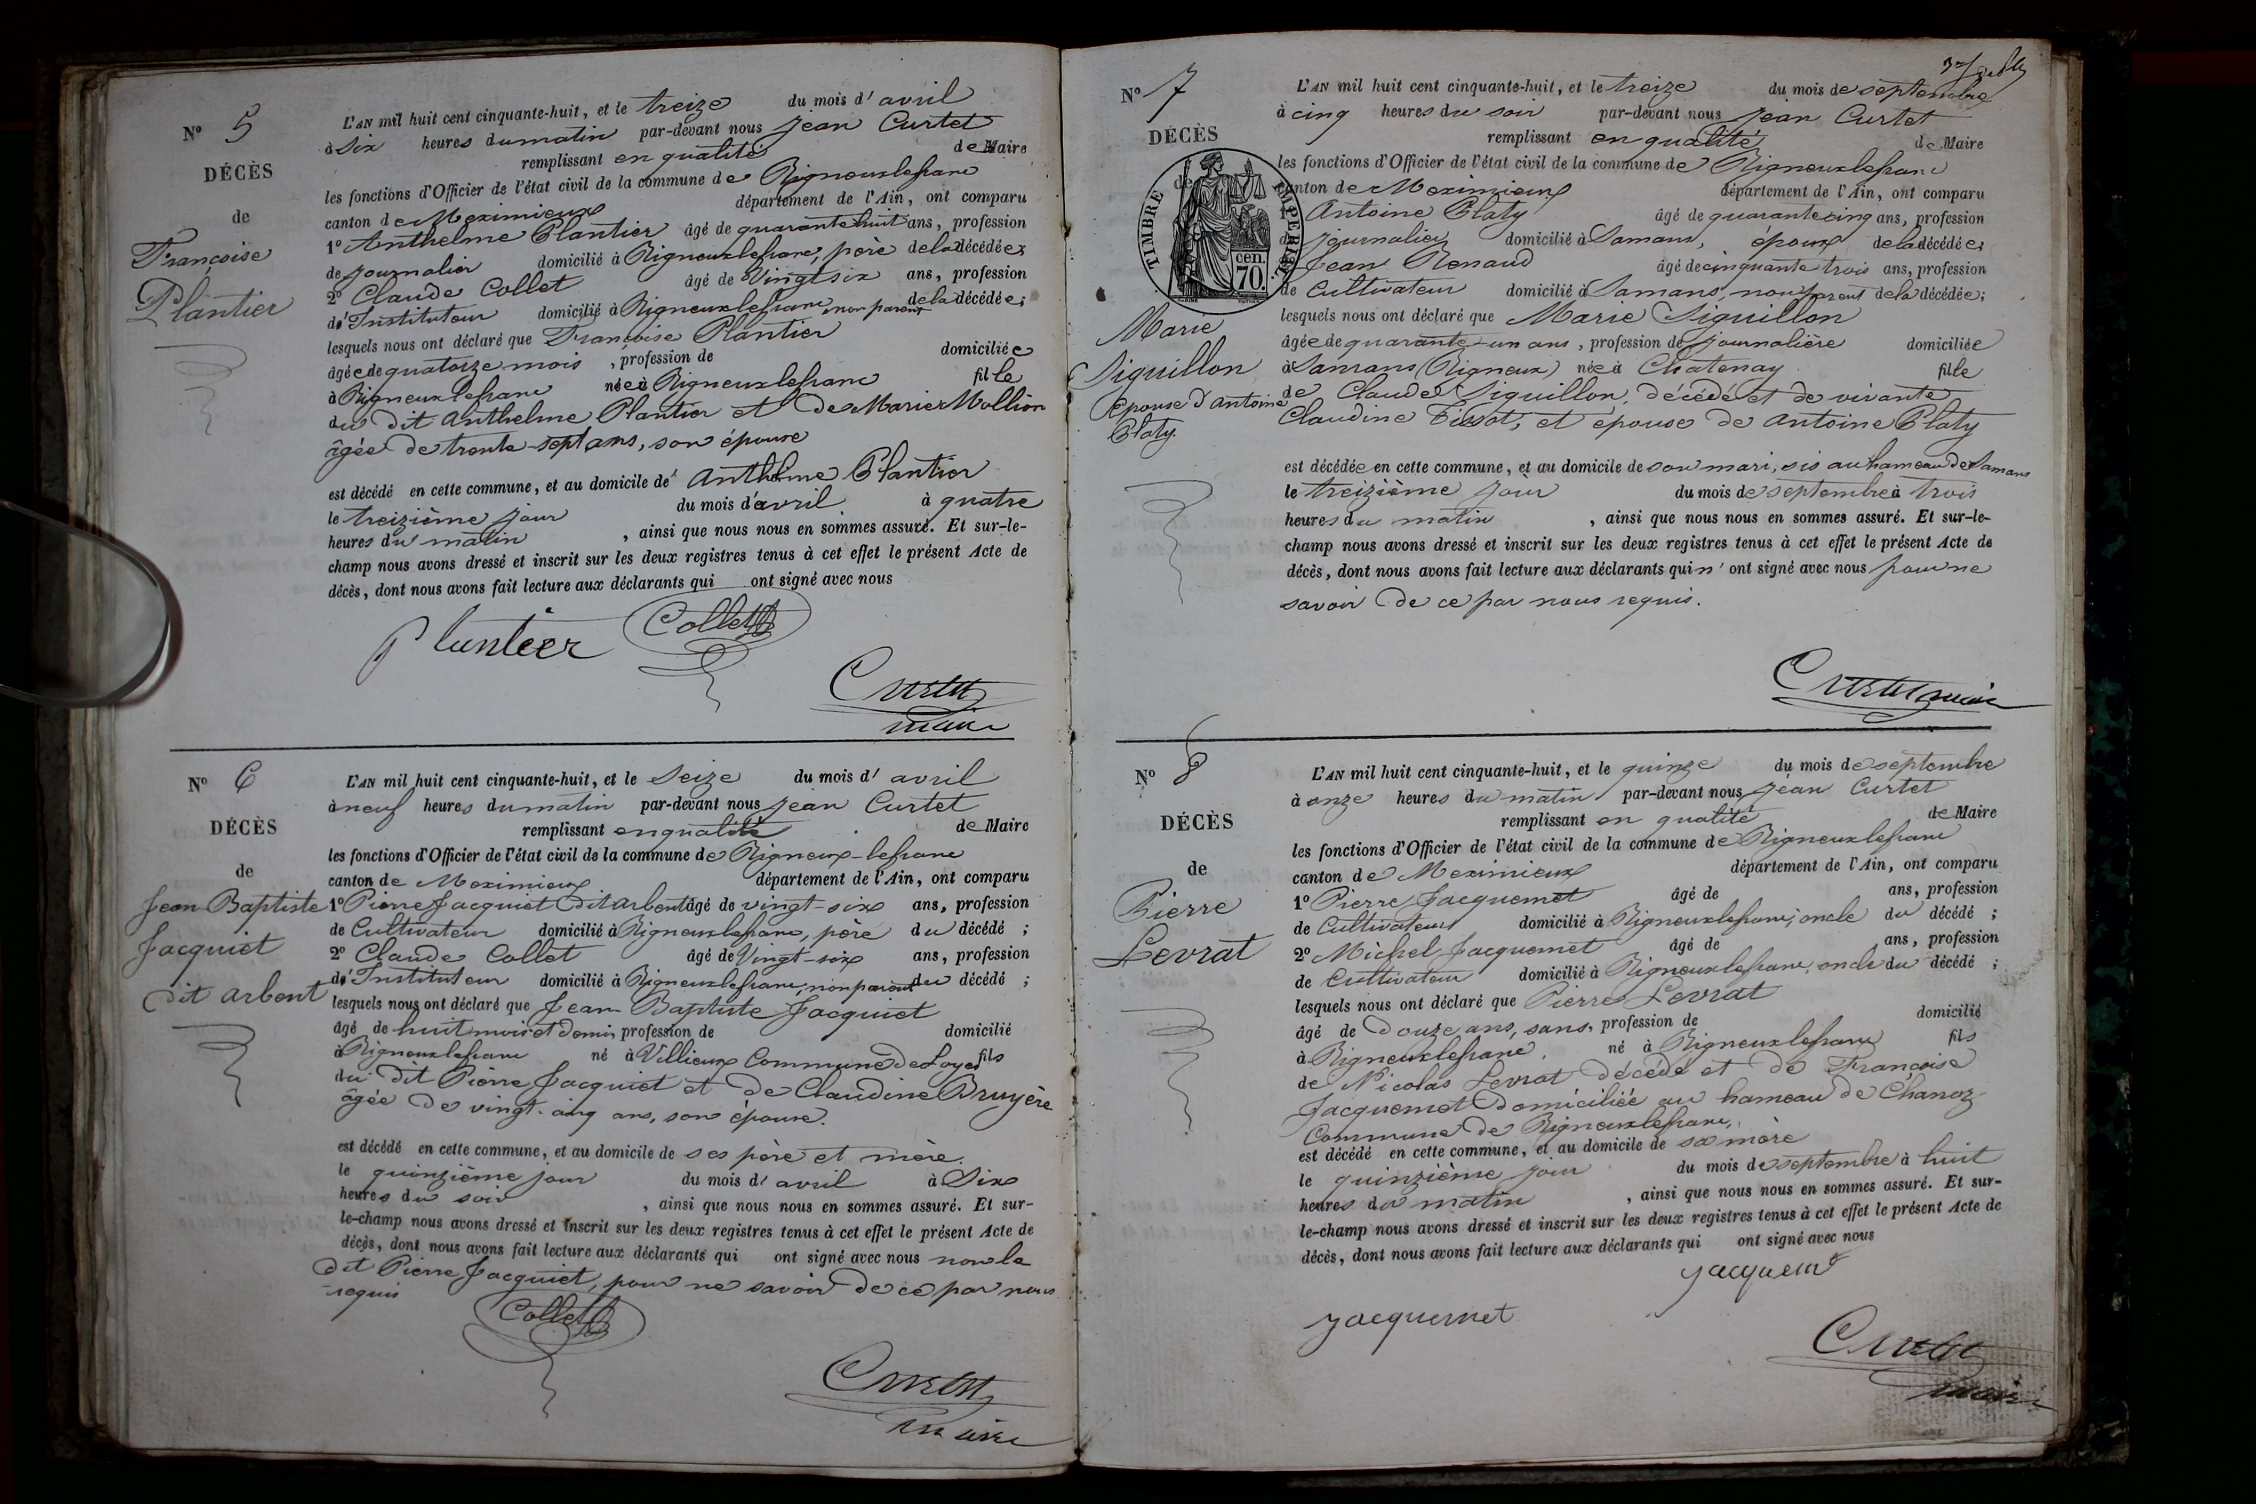 N° 5
DÉCÈS
de
Françoise
Plantier
L'AN mil huit cent cinquante-huit, et le treize du mois d'avril
à six heures du matin par-devant nous Jean Curtet
remplissant en qualité de Maire
les fonctions d'Officier de l'état civil de la commune de Rigneux le franc
canton de Meximieux département de l'Ain, ont comparu
1° Anthelme Plantier âgé de quarante huit ans, profession
de journalier domicilié à Rigneux le franc, père de la décédée;
2° Claude Collet âgé de Vingt six ans, profession
d'Instituteur domicilié à Rigneux le franc, non parent de la décédée;
lesquels nous ont déclaré que Françoise Plantier
âgée de quatorze mois, profession de domiciliée
à Rigneux le franc née à Rigneux le franc fille
du dit Anthelme Plantier et de Marie Mollion
âgée de trente-sept ans, son épouse
est décédé en cette commune, et au domicile de Anthelme Plantier
le treizième jour du mois d'avril à quatre
heures du matin, ainsi que nous nous en sommes assuré. Et sur-le-
champ nous avons dressé et inscrit sur les deux registres tenus à cet effet le présent Acte de
décès, dont nous avons fait lecture aux déclarants qui ont signé avec nous
Plantier Collet
Curtet
maire
N° 6
DÉCÈS
de
Jean Baptiste
Jacquiet
dit arbent
L'AN mil huit cent cinquante-huit, et le seize du mois d'avril
à neuf heures du matin par-devant nous Jean Curtet
remplissant en qualité de Maire
les fonctions d'Officier de l'état civil de la commune de Rigneux-le franc
canton de Meximieux département de l'Ain, ont comparu
1° Pierre Jacquiet dit arbent âgé de vingt-six ans, profession
de Cultivateur domicilié à Rigneux le franc, père du décédé;
2° Claude Collet âgé de Vingt-six ans, profession
d'Instituteur domicilié à Rigneux le franc, non parent du décédé;
lesquels nous ont déclaré que Jean Baptiste Jacquiet
âgé de huit mois et demi, profession de domicilié
à Rigneux le franc né à Villieux Commune de Loyes fils
du dit Pierre Jacquiet et de Claudine Bruyère
âgée de vingt-cinq ans, son épouse.
est décédé en cette commune, et au domicile de ses père et mère.
le quinzième jour du mois d'avril à Six
heures du soir, ainsi que nous nous en sommes assuré. Et sur-
le-champ nous avons dressé et inscrit sur les deux registres tenus à cet effet le présent Acte de
décès, dont nous avons fait lecture aux déclarants qui ont signé avec nous non le
dit Pierre Jacquiet, pour ne savoir de ce par nous
requis
Collet
Curtet
maire
N° 7
DÉCÈS
de
TIMBRE IMPÉRIAL
70 cen.
Marie
Siguillon
épouse d'Antoine
Platy.
L'AN mil huit cent cinquante-huit, et le treize du mois de septembre
à cinq heures du soir par-devant nous Jean Curtet
remplissant en qualité de Maire
les fonctions d'Officier de l'état civil de la commune de Rigneux le franc
canton de Meximieux département de l'Ain, ont comparu
Antoine Platy âgé de quarante cinq ans, profession
de journalier domicilié à Samans, époux de la décédée;
Jean Renaud âgé de cinquante trois ans, profession
de Cultivateur domicilié à Samans, non parent de la décédée;
lesquels nous ont déclaré que Marie Siguillon
âgée de quarante-un ans, profession de journalière domiciliée
à Samans (Rigneux) née à Chatenay fille
de Claude Siguillon, décédé et de vivante
Claudine Tissot, et épouse de Antoine Platy
est décédée en cette commune, et au domicile de son mari, sis au hameau de Samans
le treizième jour du mois de septembre à trois
heures du matin, ainsi que nous nous en sommes assuré. Et sur-le-
champ nous avons dressé et inscrit sur les deux registres tenus à cet effet le présent Acte de
décès, dont nous avons fait lecture aux déclarants qui n'ont signé avec nous pour ne
savoir de ce par nous requis.
Curtet maire
N° 8
DÉCÈS
de
Pierre
Levrat
L'AN mil huit cent cinquante-huit, et le quinze du mois de septembre
à onze heures du matin par-devant nous Jean Curtet
remplissant en qualité de Maire
les fonctions d'Officier de l'état civil de la commune de Rigneux le franc
canton de Meximieux département de l'Ain, ont comparu
1° Pierre Jacquemet âgé de ans, profession
de Cultivateur domicilié à Rigneux le franc, oncle du décédé;
2° Michel Jacquemet âgé de ans, profession
de Cultivateur domicilié à Rigneux le franc, oncle du décédé;
lesquels nous ont déclaré que Pierre Levrat
âgé de Douze ans, sans, profession de domicilié
à Rigneux le franc, né à Rigneux le franc fils
de Nicolas Levrat décédé et de Françoise
Jacquemet domiciliée au hameau de Chanoz
Commune de Rigneux le franc,
est décédé en cette commune, et au domicile de sa mère
le quinzième jour du mois de septembre à huit
heures du matin, ainsi que nous nous en sommes assuré. Et sur-
le-champ nous avons dressé et inscrit sur les deux registres tenus à cet effet le présent Acte de
décès, dont nous avons fait lecture aux déclarants qui ont signé avec nous
jacquemet
jacquemet
Curtet
maire